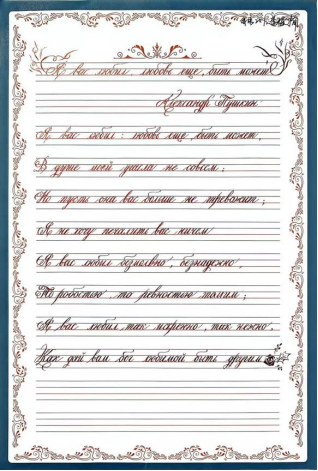 Я вас любил: любовь еще, быть может
Александр Пушкин
Я вас любил: любовь еще, быть может,
В душе моей угасла не совсем;
Но пусть она вас больше не тревожит;
Я не хочу печалить вас ничем.
Я вас любил безмолвно, безнадежно,
То робостью, то ревностью томим;
Я вас любил так искренно, так нежно,
Как дай вам бог любимой быть другим